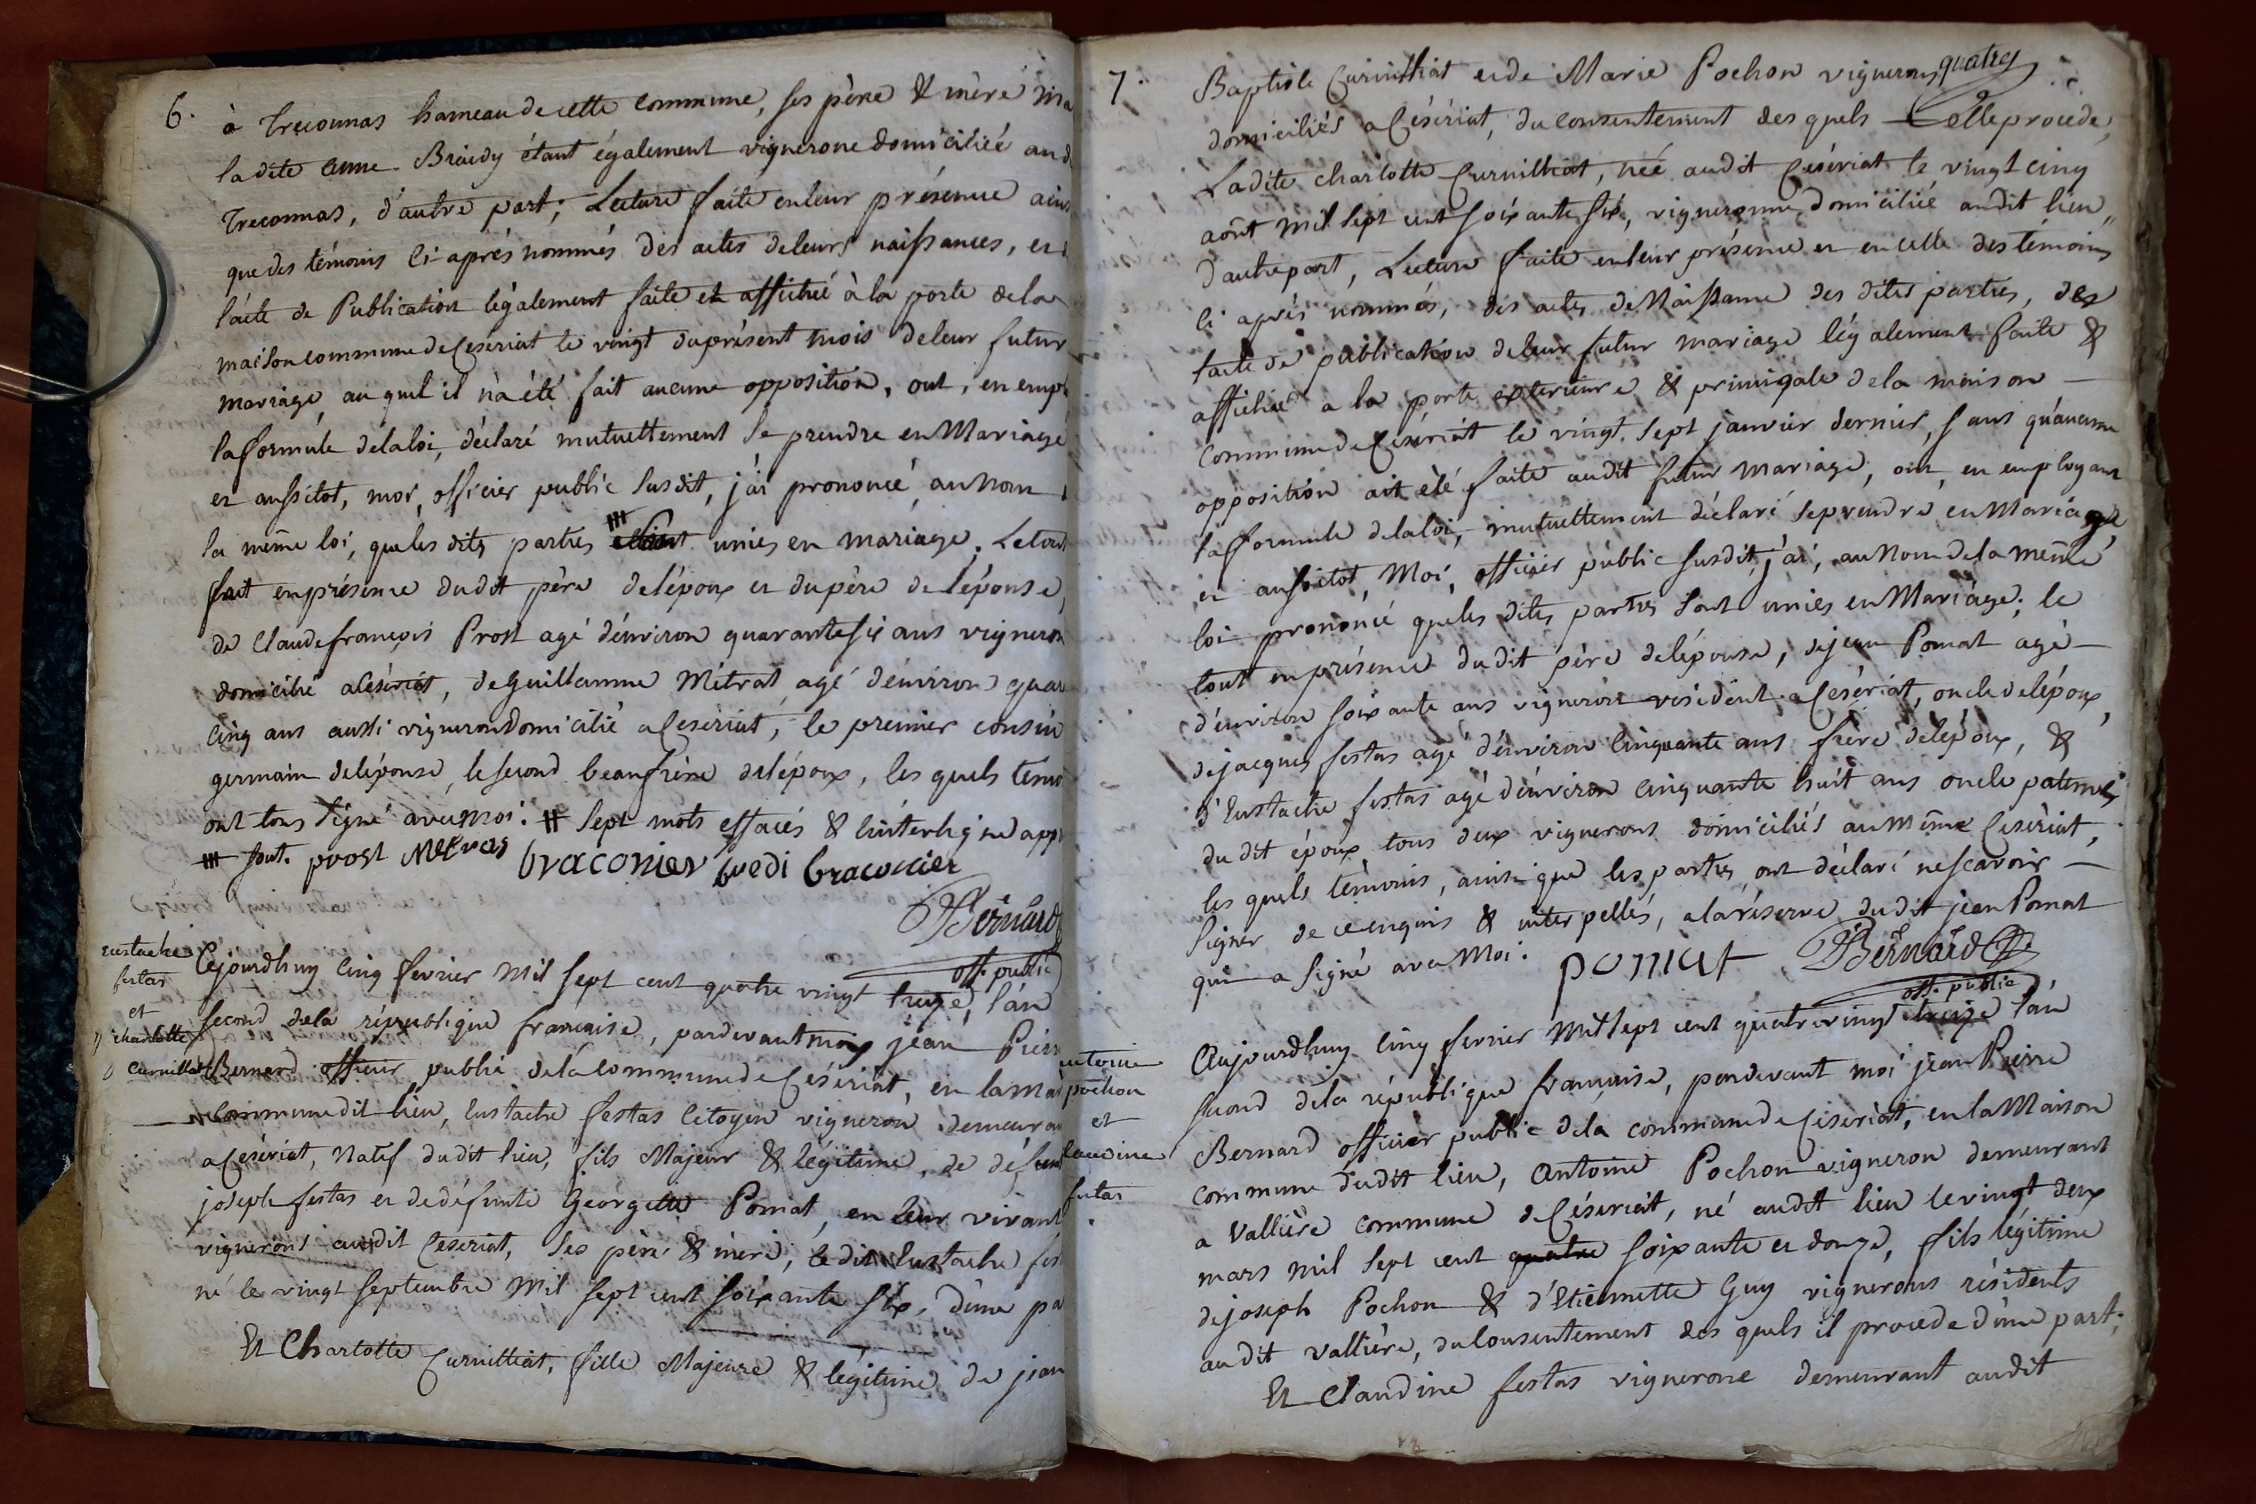 6.
à Treconnas hameau de cette commune, ses père & mère
la dite anne Braidy étant également vignerone domiciliée
Treconnas, d'autre part; Lecture faite en leur présence
que des témoins ci-après nommés des actes de leurs naissances, et
l'acte de Publication légalement faite et affichée à la porte de la
maison commune de Ceseriat le vingt du présent mois de leur futur
mariage, au quel il n'a été fait aucune opposition, ont, en
la formule de la loi, déclaré mutuellement se prendre en Mariage
et aussitot, moi, officier public susdit, j'ai prononcé, au nom
la même loi, que les dites parties unies en mariage. Le tout
fait en présence dudit père de l'époux et du père de l'épouse,
de Claude françois Prost agé d'environ quarante six ans vigneron
domicilié a Ceseriat, de Guillaume Mitrat agé d'environ
cinq ans aussi vigneron domicilié a Ceseriat, le premier cousin
germain de l'épouse, le second beaufrère de l'époux, les quels
ont tous signé avec moi. # sept mots effacés & l'interligne
sont. prost braconier bredi braconier
JBernard
off. public
eustache
festas
et
charlotte
Curnillat
Cejourdhuy cinq fevrier Mil sept cent quatre vingt treize, l'an
second de la république française, pardevant moi jean
Bernard officier public de la commune de Céseriat, en la
commune dit lieu, Eustache festas Citoyen vigneron
a Ceseriat, Natif dudit lieu, fils Majeur & légitime, de
joseph festas et de défunte Georgette Pomat, en leur vivant
vignerons audit Ceseriat, ses père & mère, le dit Eustache
né le vingt septembre Mil sept cent soixante six, d'une
Et Charlotte Curnilliat, fille Majeure & légitime de jean
7.
quatre
Baptiste Curnilliat et de Marie Pochon vignerons
domiciliés a Césériat, du consentement des quels Elle procede,
Ladite charlotte Curnilliat, née audit Cesériat le vingt cinq
août mil sept cent soixante six, vigneronne, domiciliée audit lieu,
d'autre part, Lecture faite en leur présence et en celle des témoins
ci après nommés, des actes de Naissance des dites parties, de
l'acte de publication de leur futur mariage légalement faite &
affichée a la porte exterieure & principale de la maison
commune de Césériat le vingt. sept janvier dernier, sans qu'aucune
opposition ait été faite audit futur mariage, ont, en employant
la formule de la loi, mutuellement déclaré se prendre en Mariage,
et aussitot, Moi, officier public susdit, j'ai, au Nom de la même
loi prononcé que les dites parties sont unies en Mariage; le
tout en présence du dit père de l'épouse, de jean Pomat agé
d'environ soixante ans vigneron résident a Césériat, oncle de l'époux,
de jacques festas agé d'environ cinquante ans frère de l'époux, &
d'Eustache festas agé d'environ cinquante huit ans oncle paternel
du dit époux tous deux vignerons domiciliés au même Ceseriat,
les quels témoins, ainsi que les parties ont déclaré ne scavoir
signer de ce enquis & interpellés, a la réserve du dit jean Pomat
qui a signé avec Moi. pomat JBernard
off. public
pochon
et
festas
Aujourdhuy cinq fevrier Mil sept cent quatre vingt treize l'an
second de la république française, pardevant moi jean Pierre
Bernard officier public de la commune de Ceseriat, en la Maison
commune dudit lieu, Antoine Pochon vigneron demeurant
a Vallière commune de Céseriat, né audit lieu le vingt deux
mars mil sept cent quatre soixante et douze, fils légitime
de joseph Pochon & d'Etiennette Guy vignerons résidents
au dit Vallière, du Consentement des quels il procede d'une part,
Et Claudine festas vignerone demeurant audit